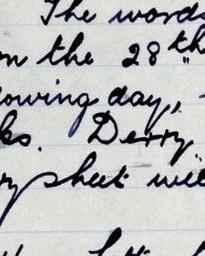 The words
on the 28th
owing day,
ks. Derry
ry sheet wil